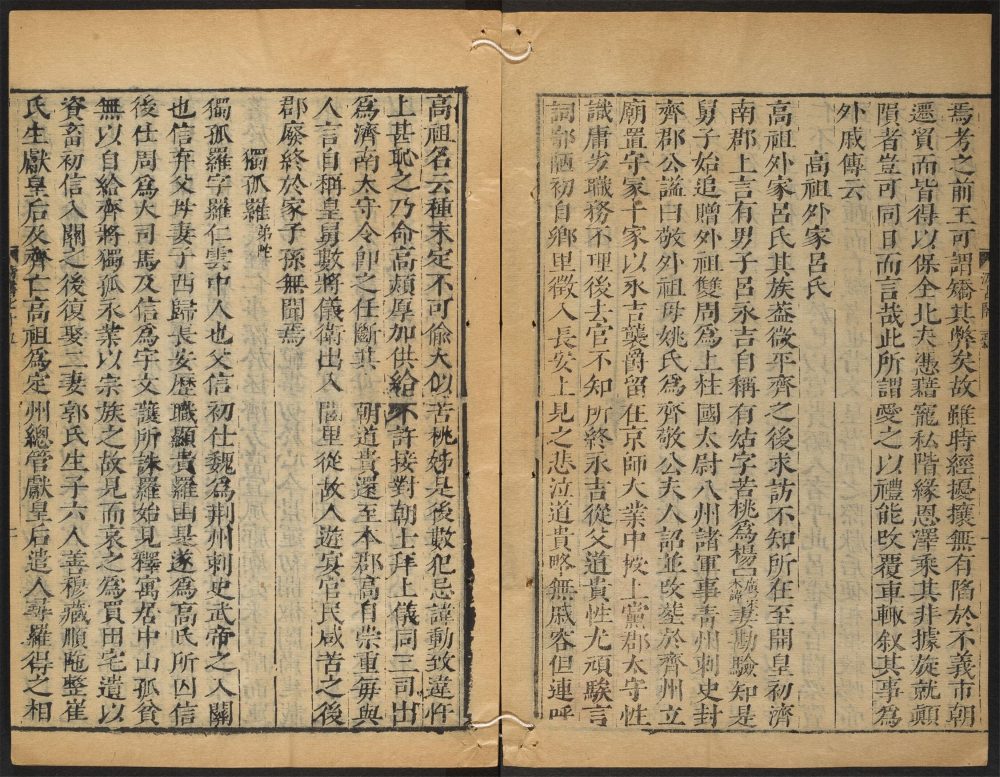 焉考之前王可謂矯其弊矣故雖時經擾攘無有陷於不義市朝
遷貿而皆得以保全北夫憑藉寵私階緣恩澤乘其非據旋就顛
隕者豈可同日而言哉此所謂愛之以禮能攺覆車輒叙其事爲
外戚傳云
高祖外家呂氏
高祖外家呂氏其族葢微平齊之後求訪不知所在至開皇初濟
南郡上言有男子呂永吉自稱有姑字苦桃爲楊諱妻勘驗知是
舅子始追贈外祖雙周爲上柱國太尉八州諸軍事靑州刺史封
齊郡公諡曰敬外祖母姚氏爲齊敬公夫人詔並攺葬於齊州立
廟置守冢十家以永吉襲爵留在京師大業中授上黨郡太守性
識庸劣職務不理後去官不知所終永吉從父道貴性尤頑騃言
詞鄙陋初自鄉里徵入長安上見之悲泣道貴略無戚容但連呼
高祖名云種末定不可偷大似苦桃姊是後數犯忌諱動致違忤
上甚恥之乃命高熲厚加供給不許接對朝士拜上儀同三司出
爲濟南太守令卽之任斷其 朝道貴還至本郡高自崇重每與
人言自稱皇舅數將儀衛出入閭里從故人遊宴官民咸苦之後
郡廢終於家子孫無聞焉
獨孤羅弟陁
獨孤羅字羅仁雲中人也父信初仕魏爲荆州刺史武帝之入關
也信弃父母妻子西歸長安歷職顯貴羅由是遂爲高氏所囚信
後仕周爲大司馬及信爲宇文護所誅羅始見釋寓居中山孤貧
無以自給齊將獨孤永業以宗族之故見而哀之爲買田宅遺以
資畜初信入關之後復娶二妻郭氏生子六人善穆藏順陁整崔
氏生獻皇后及齊亡高祖爲定州總管獻皇后遣人尋羅得之相